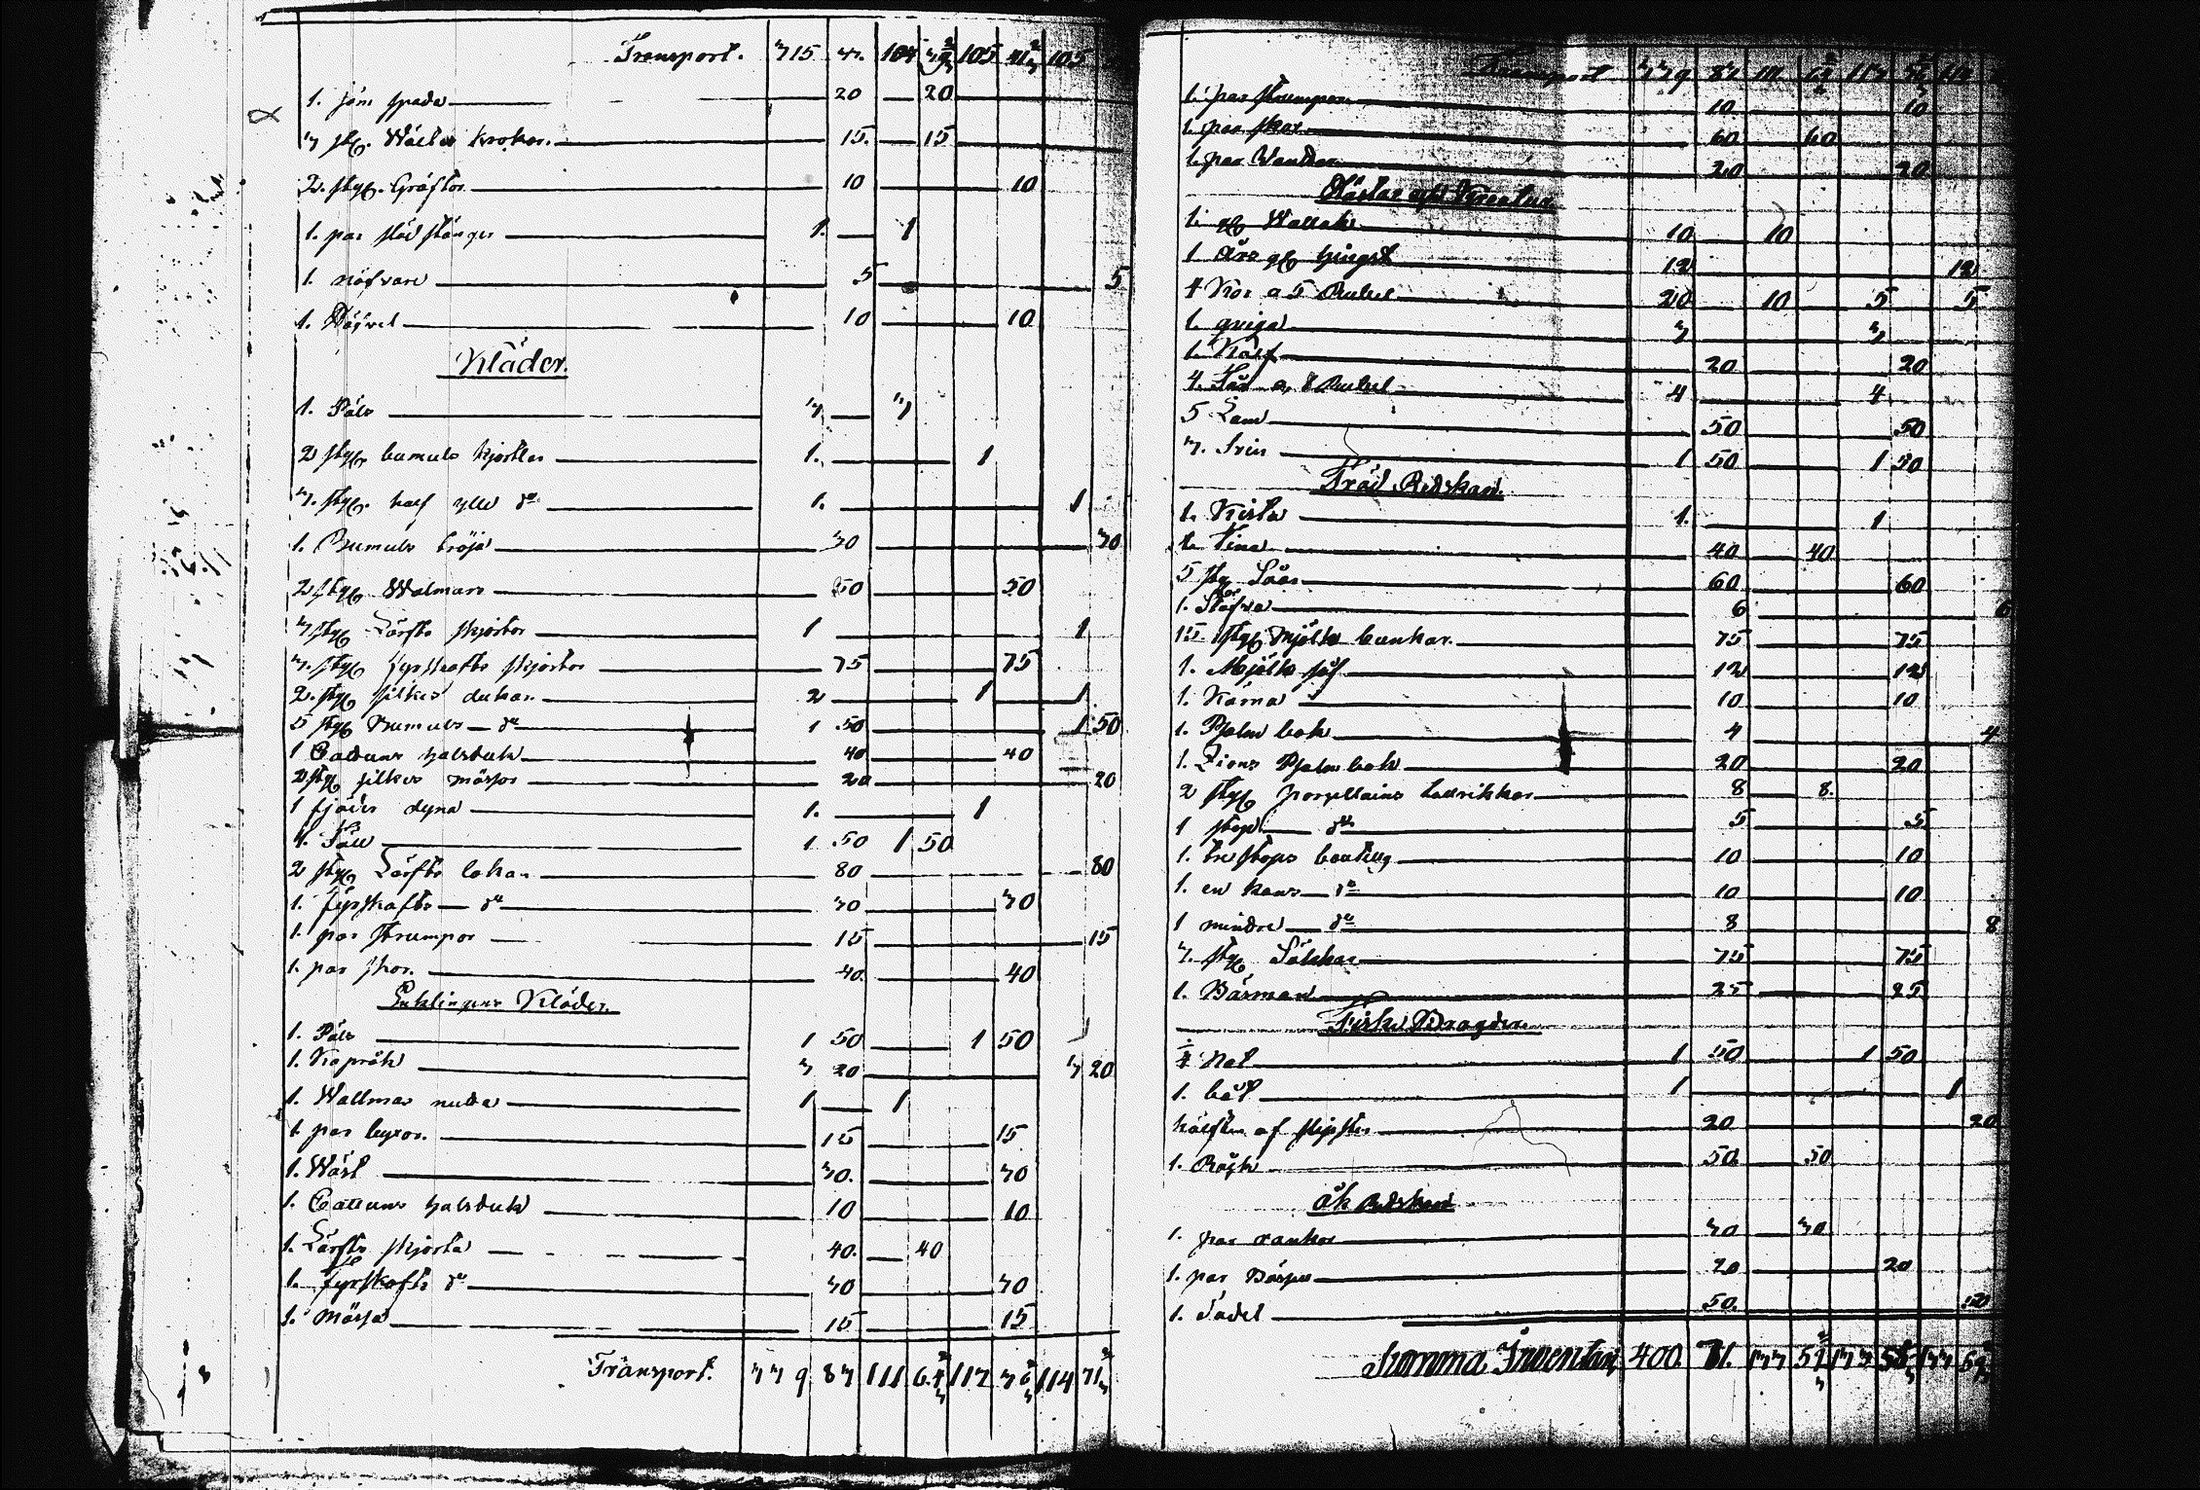 Transport. 315 3. 104 105 105
1. järn spada 20 20
3 st. Wäelter krokar. 15. 15
2. styc. Gräftor 10 10
1. par stöd stänger 1. 1
1 näfvare 5 5
1. 10 10
Kläder.
1. Päls 3 3
2 styc bumuls kjortlar 1. 1
3. styc. half ylle do 1. 1
1. Bumuls tröja 30 30
2 styc Walmars 50 50
3 styc Lärfts skjortor 1 1
3. styc fyrskafts skjortor 75 75
2. styc silkes dukar 2 1 1
5 styc Bumuls do 1 50 1 50
1 Cattuns halsduk 40 40
2 styc silkes mössor 20 20
1 fjäder dyna 1. 1
1. Fäll 1 50 1 50
2 styc Lärfts lakan 80 80
1. fyrskafts do 30 30
1. par strumpor 15 15
1. par skor. 40 40
Enklingens Kläder.
1. Päls 1 50 1 50
1. Kaprök 3 20 3 20
1. Wallmars 1 1
1. par byxor. 15 15
1. Wäst 30. 30
1. Cattuns halsduk 10 10
1. Lärfts skjorta 40. 40
1. fyrskafts do 30 30
1. Mössa 15 15
Transport. 339 83 111 117 114
Transport 339 83 111 117 114
1. par strumpor 10 10
1. par skor 60 60
1. par Wantar 20 20
Hästar och Kreatur
1. Wallak 10 10
1 hingst 12 12
4 Kor a 5 Rubel 20 10 5 5
1. qviga 3 3
1. Kalf 20 20
4. Får a 1 Rubel 4 4
5 Lam 50 50
3. Svin 1 50 1 50
Träd Redskap.
1. Kista 1. 1
1. Tina 40 40
5 styc Såar 60 60
1. Stäfva 6 6
15 styc Mjölk bunkar 75 75
1. Mjölk sil 12 12
1. Kärna 10 10
1. Psalm bok 4 4
1. Zions Psalm bok 20 20
2 styc porsellains tallrikkar 8 8.
1 do 5 5
1. tre stops bouteilg 10 10
1. en kans do 10 10
1 mindre do 8 8
3. styc Säckar 75 75
1. Bärman 25 25
Fiske Bragder
Not 1 50 1 50
1. båt 1 1
hälften af 20 20
1. 50 50
Åk Redskap
1. par rankor 30 30
1. par 20 20
1. Sadel 50. 50
Summa Inventari 400 71. 133 133 133